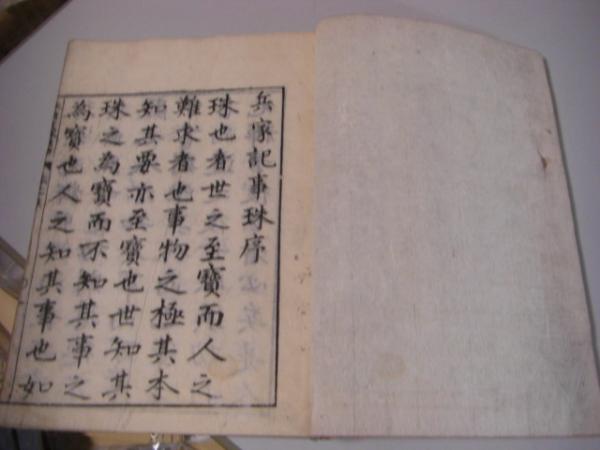 兵家記事珠序
珠也者世之至寶而人之
難求者也事物之極其本
知其要亦至寶也世知其
珠之為寶而不知其事之
為寶也人之知其事也如